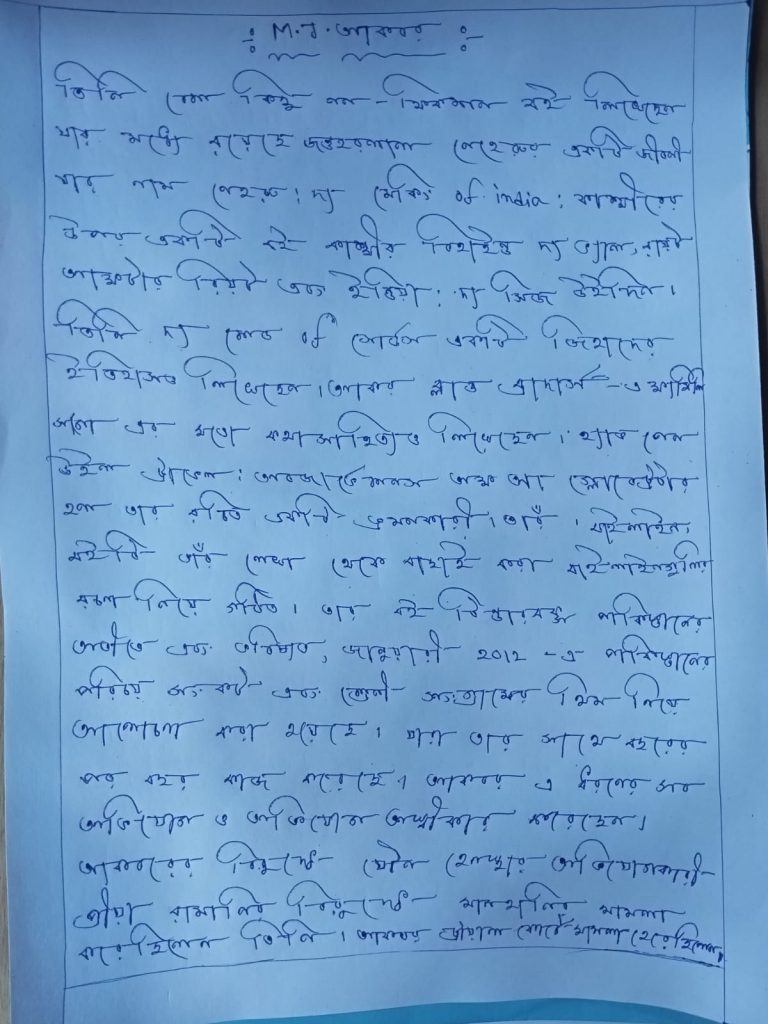 ÷ M.J. আকবর ÷
তিনি বেশ কিছু নন-ফিকশন বই লিখেছেন
যার মধ্যে রয়েছে জওহরলাল নেহেরুর একটি জীবনী
যার নাম নেহরু: দ্য মেকিং of india: কাশ্মীরের
উপর একটি বই কাশ্মীর বিহাইন্ড দ্য ভ্যাল, রায়ট
আফটার রিয়ট এবং ইন্ডিয়া: দ্য সিজ উইদিন।
তিনি দ্য শেড of সোর্ডস একটি জিহাদের
ইতিহাসও লিখেছেন। আকবর ব্লাড ব্রাদার্স - এ ফ্যামিলি
সাগা এর মতো কথাসাহিত্যও লিখেছেন। হ্যাভ পেন
উইল ট্রাভেল: অবজার্ভেশনস অফ আ গ্লোবেট্রটার
হল তার রচিত একটি ভ্রমনকারী। তাঁর। বাইলাইন,
বইটি তাঁর লেখা থেকে বাছাই করা বাইলাইনগুলির
রচনা নিয়ে গঠিত। তার বই টিন্ডারবক্স পাকিস্তানের
অতীত এবং ভবিষ্যত, জানুয়ারী 2012 -এ পাকিস্তানের
পরিচয় সংকট এবং শ্রেণী সংগ্রামের থিম নিয়ে
আলোচনা করা হয়েছে। যারা তার সাথে বছরের
পর বছর কাজ করেছে। আকবর এ ধরনের সব
অভিযোগ ও অভিযোগ অস্বীকার করেছেন।
আকবরের বিরুদ্ধে যৌন হেনস্থার অভিযোগকারী
প্রিয়া রামানির বিরুদ্ধে মানহানির মামলা
করেছিলেন তিনি। আকবর ট্রায়াল কোর্টে মামলা হেরেছিলেন।